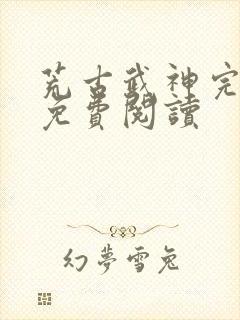 荒古武神完
免費閱讀
幻夢雪兔